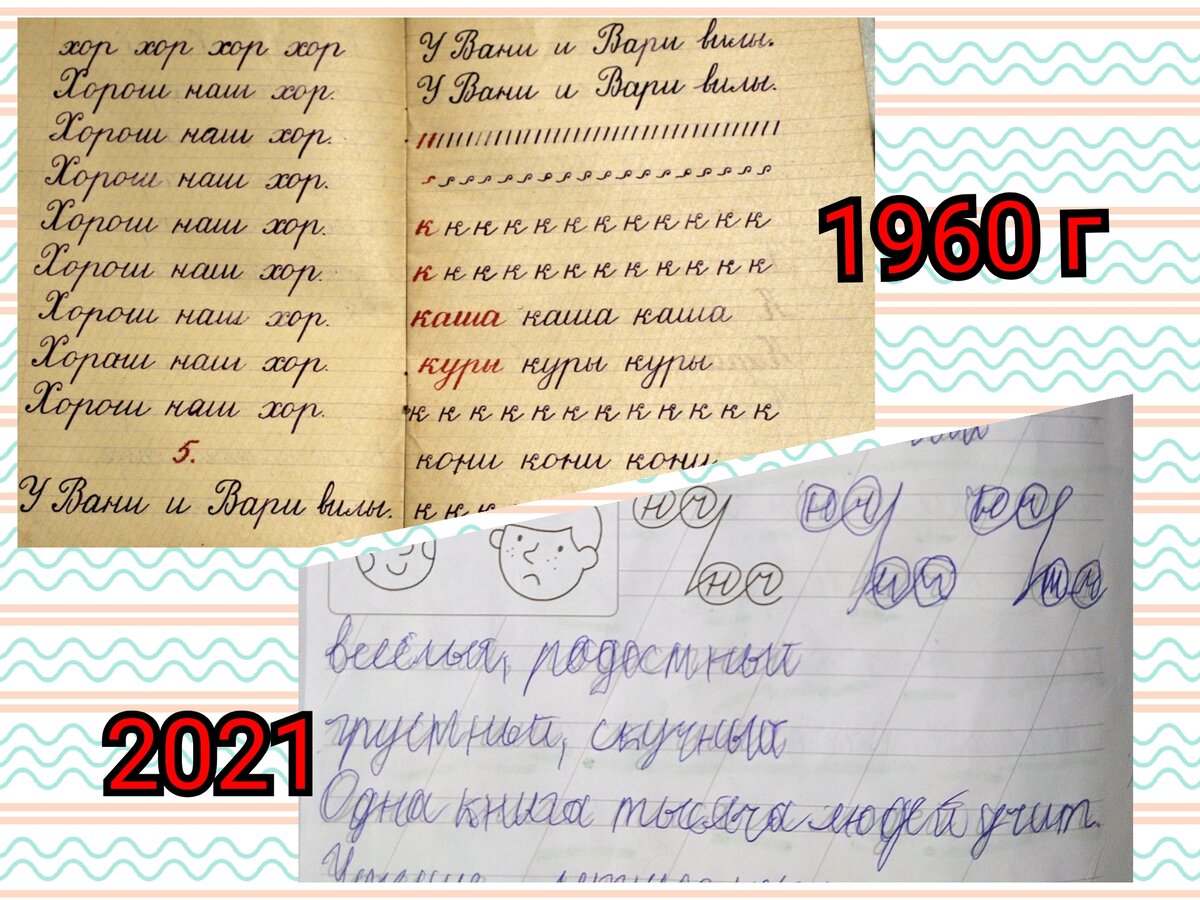 хор хор хор хор
Хорош наш хор.
Хорош наш хор.
Хорош наш хор.
Хорош наш хор.
Хорош наш хор.
Хорош наш хор.
Хораш наш хор.
Хорош наш хор.
5.
У Вани и Вари вилы.
У Вани и Вари вилы.
У Вани и Вари вилы.
к к к к к к к к к к к к
к к к к к к к к к к к к
каша каша каша
куры куры куры
к к к к к к к к к к к к
кони кони кони
к к к
1960 г
2021
н ч н ч н ч
н ч н ч н ч
весёлый, радостный
грустный, скучный
Одна книга тысяча людей учит.